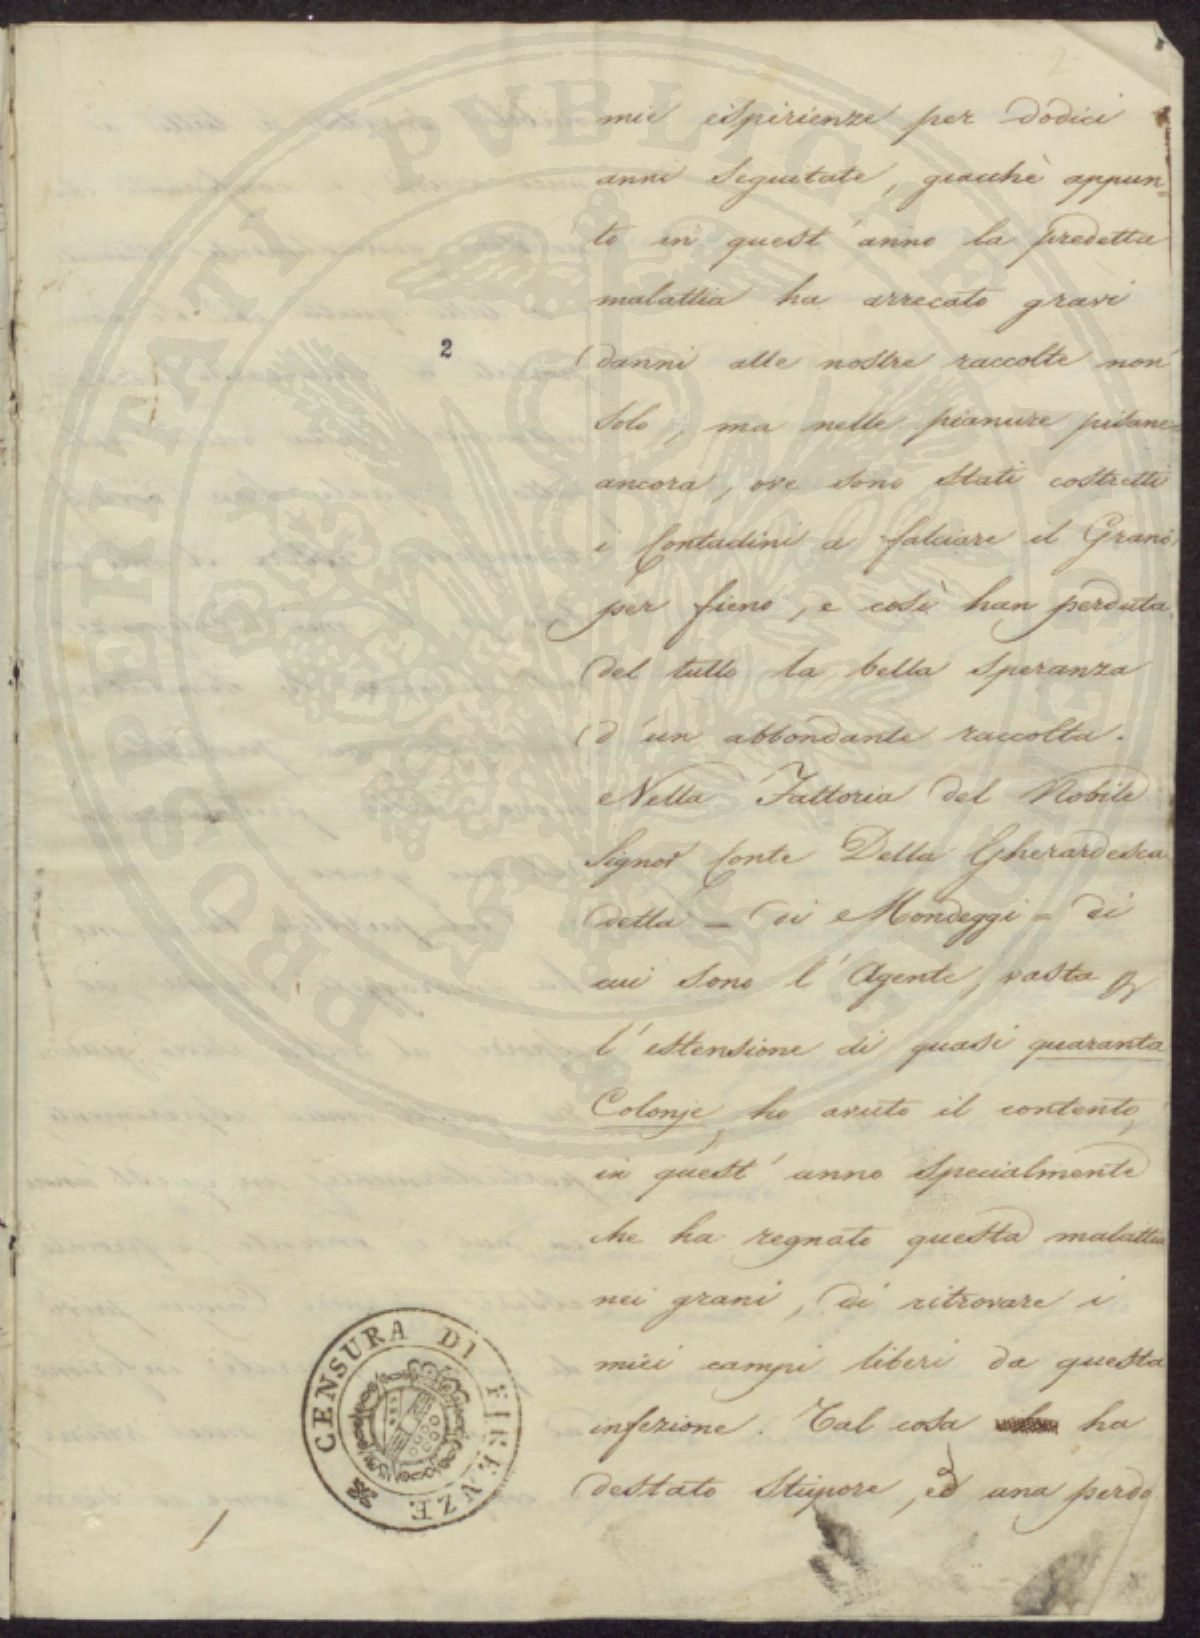 2
mie espirienze per dodici
anni seguitate, giacchè appun=
to in quest'anno la predetta
malattia ha arrecato gravi
danni alle nostre raccolte non
solo, ma nelle pianure pisane
ancora, ove sono stati costretti
i Contadini a falciare il Grano
per fieno, e così han perduta
del tutto la bella speranza
d'un abbondante raccolta.
Nella Fattoria del Nobile
Signor Conte Della Gherardesca
detta = di Mondeggi = di
cui sono l'Agente, vasta
l'estensione di quasi quaranta
Colonje, ho avuto il contento,
in quest'anno specialmente
che ha regnato questa malattia
nei grani, di ritrovare i
miei campi liberi da questa
infezione. Tal cosa ha
destato stupore, ed una perdo
CENSURA DI FIRENZE
PROSPERITATI PVBLICAE